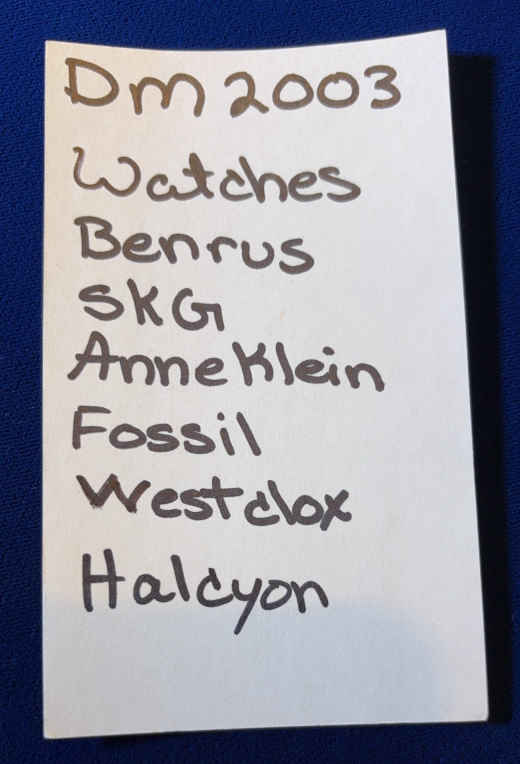 Dm 2003
Watches
Benrus
SKG
Anne Klein
Fossil
Westclox
Halcyon